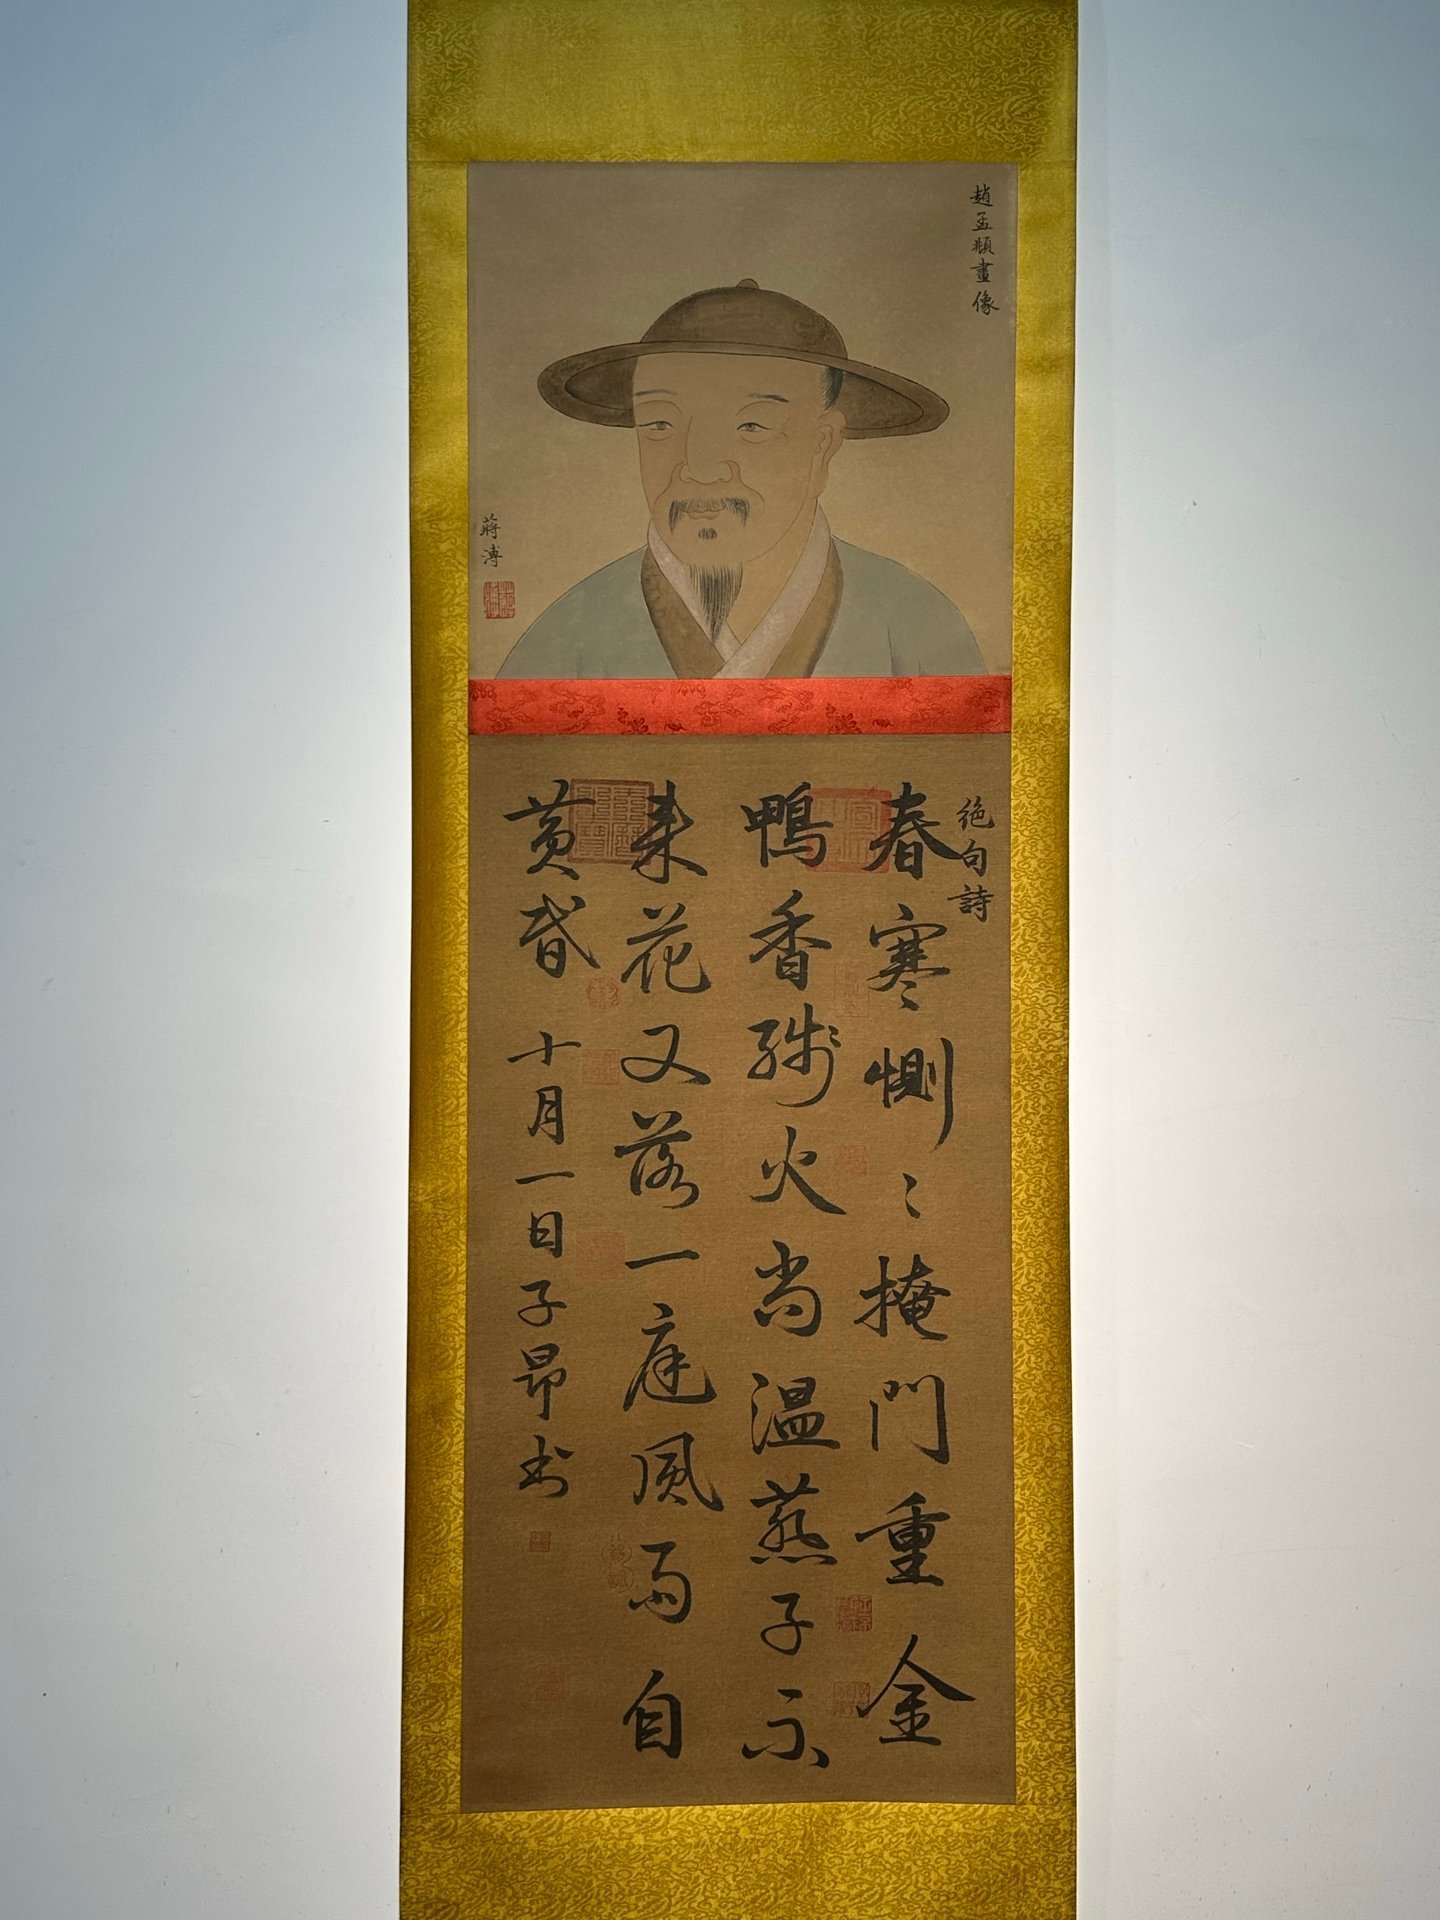 趙孟頫畫像
蔣溥
絶句詩
春寒惻〻掩門重金
鴨香殘火尚温燕子不
來花又落一庭風雨自
黄昏 十月一日子昂书